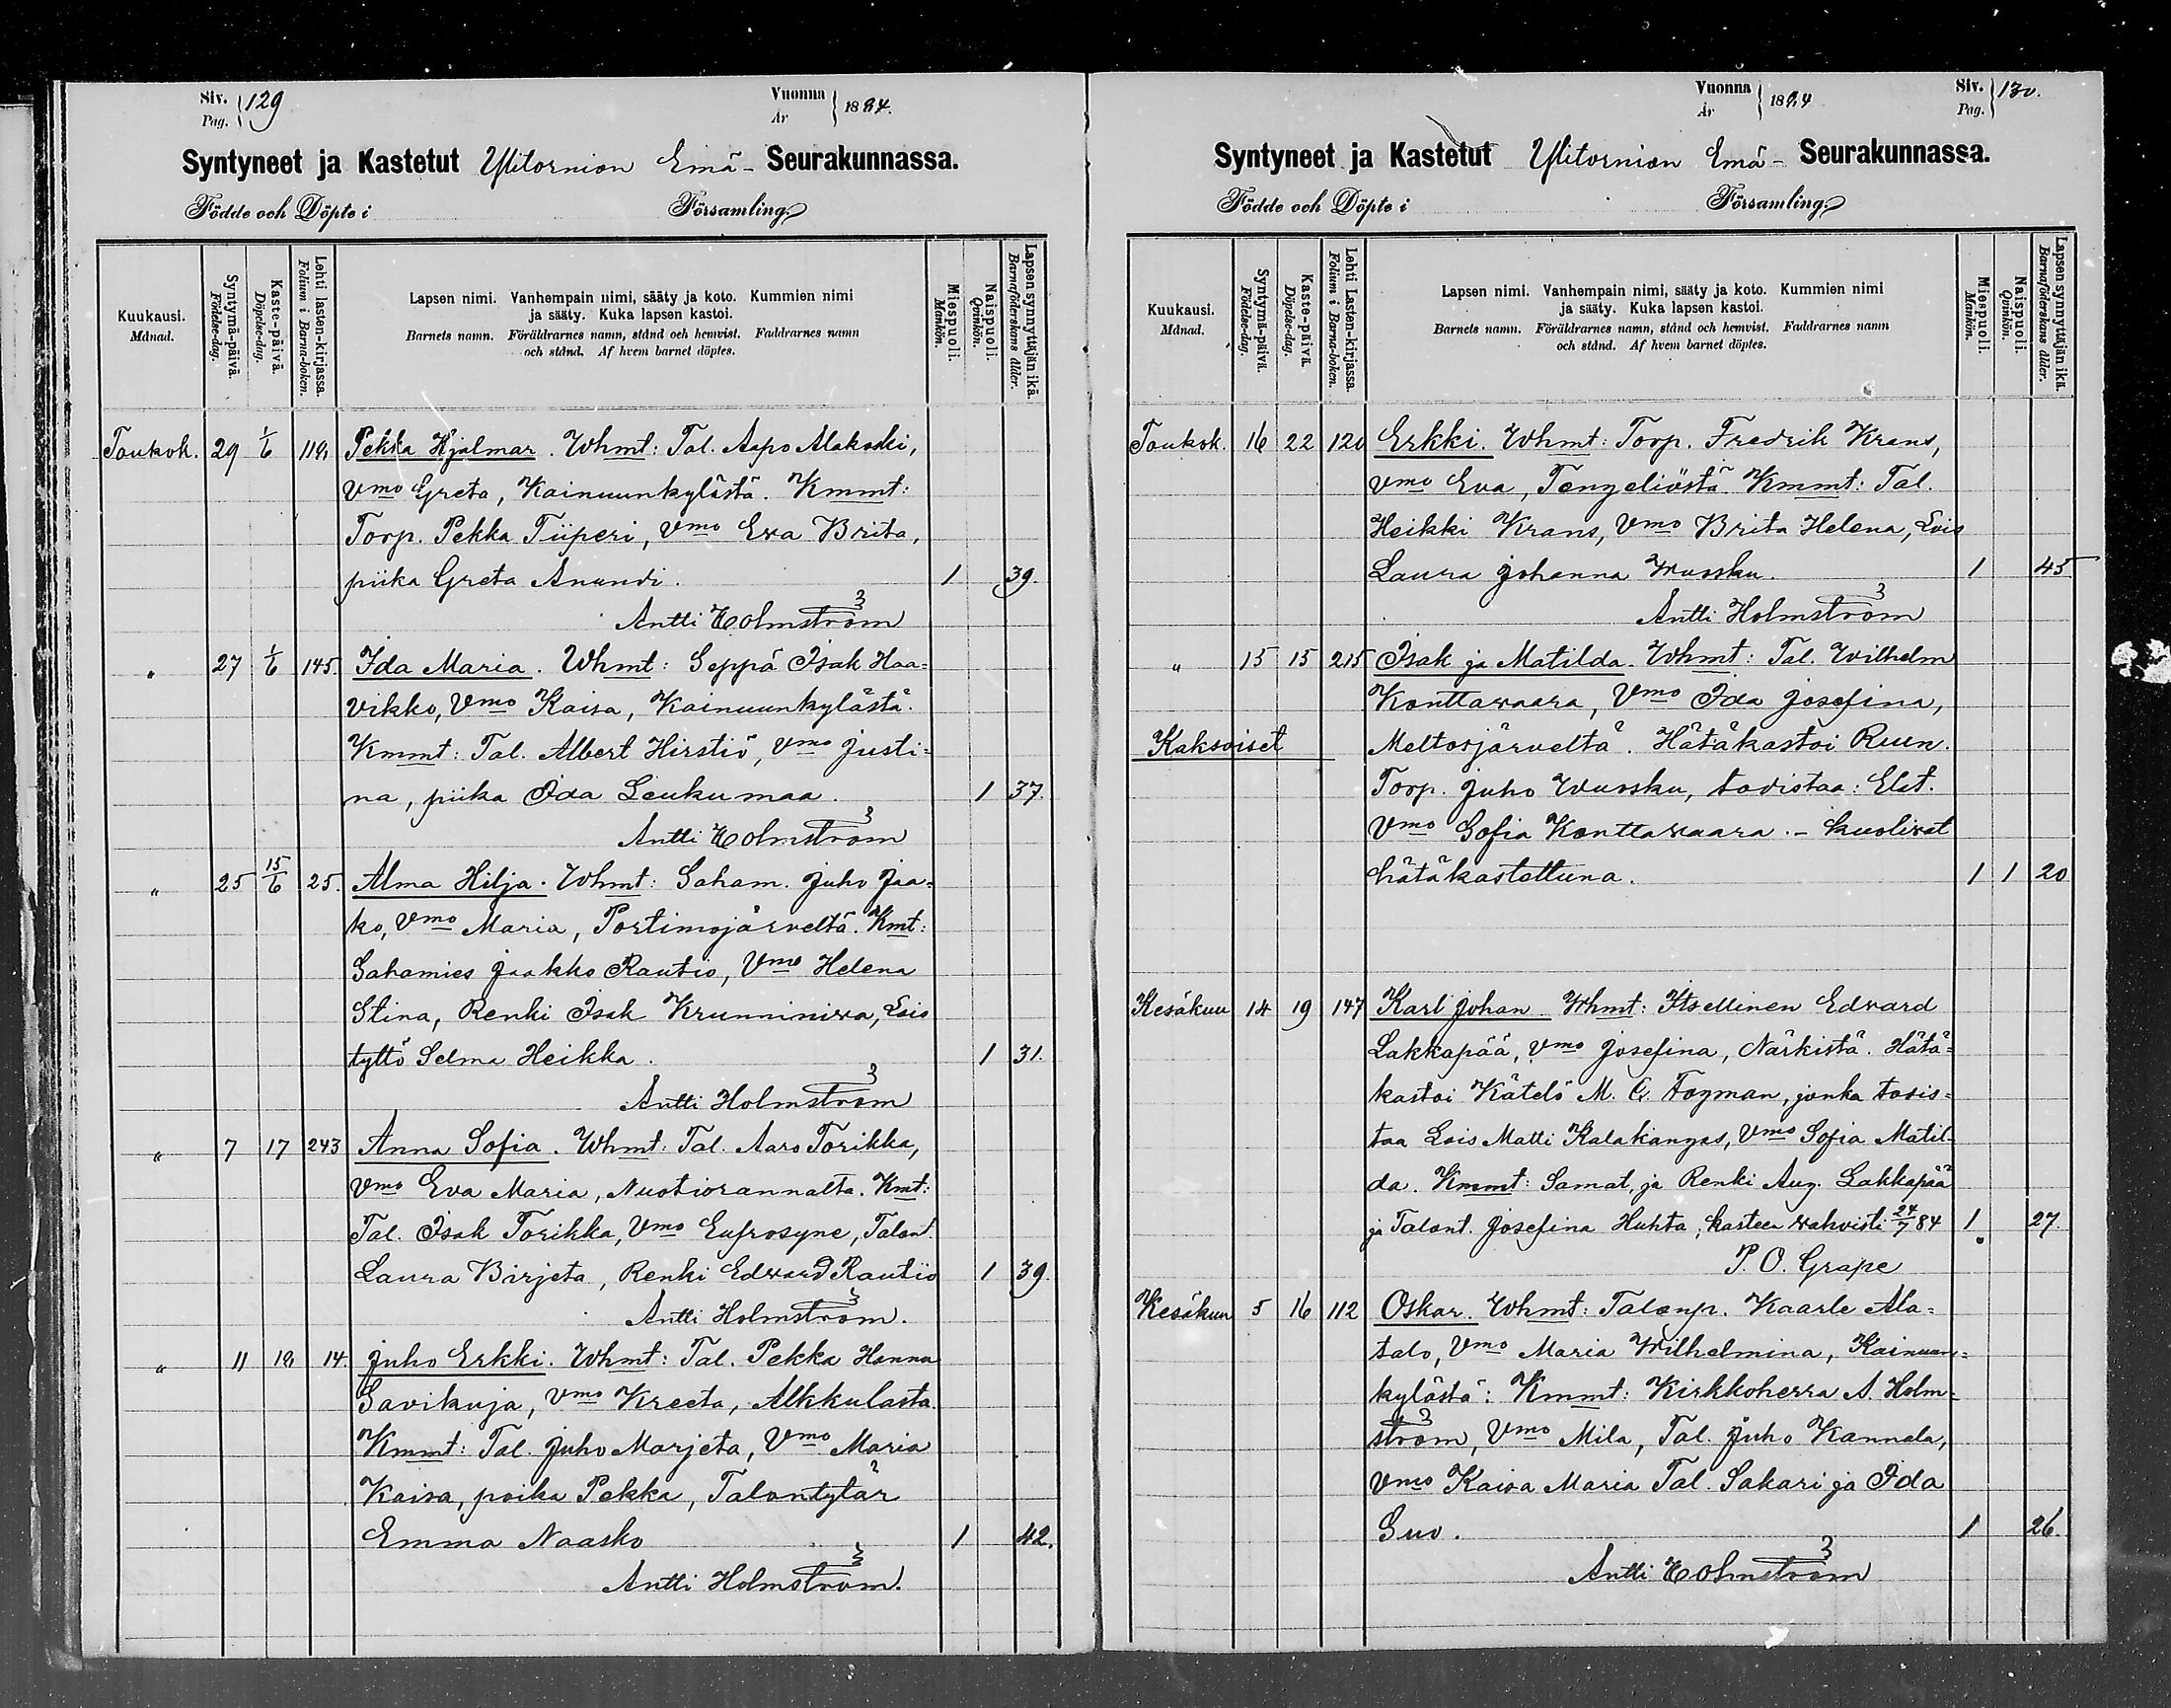 Siv. Pag. 129
Vuonna År 1884.
Syntyneet ja Kastetut Ylitornion Emä- Seurakunnassa.
Födde och Döpte i Församling
Kuukausi. Månad.
Syntymä-päivä. Födelse-dag.
Kaste-päivä. Döpelse-dag.
Lehti lasten-kirjassa. Folium i Barna-boken.
Lapsen nimi. Vanhempain nimi, sääty ja koto. Kummien nimi
ja sääty. Kuka lapsen kastoi.
Barnets namn. Föräldrarnes namn, stånd och hemvist. Faddrarnes namn
och stånd. Af hvem barnet döptes.
Miespuoli. Mankön.
Naispuoli. Qvinkön.
Lapsen synnyttäjän ikä. Barnaföderskans ålder.
Toukok. 29 1/6 118 Pekka Hjalmar. Whmt: Tal. Aapo Alakoski,
Vmo Greta, Kainuunkylästä. Kmmt:
Torp. Pekka Tiiperi, Vmo Ewa Brita,
piika Greta Anundi. 1 39.
Antti Holmström
" 27 1/6 145 Ida Maria. Whmt: Seppä Isak Haa=
vikko, Vmo Kaisa, Kainuunkylästä.
Kmmt: Tal. Albert Hirstiö, Vmo Justi=
na, piika Ida Leukumaa. 1 37.
Antti Holmström
" 25 15/6 25. Alma Hilja. Whmt: Saham. Juho Jaa=
ko, Vmo Maria, Portimojärveltä. Kmt:
Sahamies Jaakko Rautio, Vmo Helena
Stina, Renki Isak Krunniniwa, Lois
tyttö Selma Heikka. 1 31.
Antti Holmström
" 7 17 243 Anna Sofia. Whmt: Tal. Aaro Torikka,
Vmo Eva Maria, Nuotiorannalta. Kmt:
Tal. Isak Torikka, Vmo Eufrosyne, Talont.
Laura Birjeta, Renki Edward Rautio 1 39.
Antti Holmström.
" 11 18 14. Juho Erkki. Whmt: Tal. Pekka Hannu
Savikuja, Vmo Kreeta, Alkkulasta.
Kmmt: Tal. Juho Marjeta, Vmo Maria
Kaisa, poika Pekka, Talontytär
Emma Naasko 1 42.
Antti Holmström.
Vuonna År 1884
Siv. Pag. 130.
Syntyneet ja Kastetut Ylitornion Emä- Seurakunnassa.
Födde och Döpte i Församling
Kuukausi. Månad.
Syntymä-päivä. Födelse-dag.
Kaste-päivä. Döpelse-dag.
Lehti Lasten-kirjassa. Folium i Barna-boken.
Lapsen nimi. Vanhempain nimi, sääty ja koto. Kummien nimi
ja sääty. Kuka lapsen kastoi.
Barnets namn. Föräldrarnes namn, stånd och hemvist. Faddrarnes namn
och stånd. Af hvem barnet döptes.
Miespuoli. Mankön.
Naispuoli. Qvinkön.
Lapsen synnyttäjän ikä. Barnaföderskans ålder.
Toukok. 16 22 120 Erkki. Whmt: Torp. Fredrik Krans,
Vmo Eva, Tengeliöstä. Kmmt: Tal.
Heikki Krans, Vmo Brita Helena, Lois
Laura Johanna Wuosku. 1 45.
Antti Holmström
" 15 15 215 Isak ja Matilda. Whmt: Tal. Wilhelm
Konttawaara, Vmo Ida Josefina,
Kaksoiset Meltosjärveltä. Hätäkastoi Ruun.
Torp. Juho Wuosku, todistaa: Elät.
Vmo Sofia Konttawaara. - kuoliwat
hätäkastettuna. 1 1 20
Kesäkuu 14 19 147 Karl Johan. Whmt: Itsellinen Edward
Lakkapää, Vmo Josefina, Närkistä. Hätä=
kastoi Kätelö M. C. Fogman, jonka todis=
taa Lois Matti Kalakangas, Vmo Sofia Matil-
da. Kmmt: Samat, ja Renki Aug. Lakkapää
ja Talont. Josefina Huhta; kasteen wahvisti 24/7 84 1. 27.
P. O. Grape
Kesäkuu 5 16 112 Oskar. Whmt: Talonp. Kaarle Ala=
talo, Vmo Maria Wilhelmina, Kainuun=
kylästä: Kmmt: Kirkkoherra A. Holm-
ström, Vmo Mila, Tal. Juho Kannala,
Vmo Kaisa Maria Tal. Sakari ja Ida
Suo. 1 26.
Antti Holmström